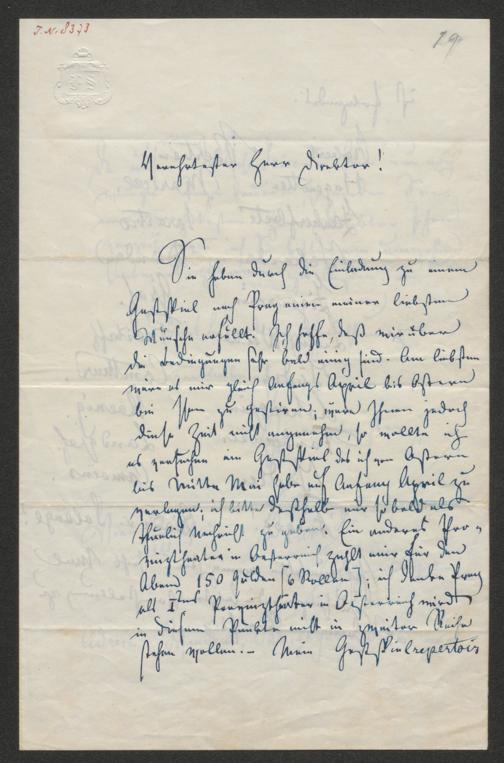 J.N. 8373
29
Verehrtester Herr Direktor!
Sie haben durch die Einladung zu einem
Gastspiel nach Prag einen meiner liebsten
Wünsche erfüllt. Ich hoffe, daß wir über
die Bedingungen sehr bald einig sind. Am liebsten
wäre es mir gleich Anfangs April bis Ostern
bei Ihnen zu gastiren; wäre Ihnen jedoch
diese Zeit nicht angenehm so wollte ich
es versuchen ein Gastspiel das ich von Ostern
bis Mitte Mai habe auf Anfang April zu
verlegen; ich bitte deshalb mir sobald als
thunlich Nachricht zu geben. Ein anderes Pro-
vinztheater in Oesterreich zahlt mir für den
Abend 150 Gulden [6 Rollen]; ich denke Prag
als Ites Provinztheater in Oesterreich wird
in diesem Punkte nicht in zweiter Reihe
stehen wollen. – Mein Gastspielrepertoir